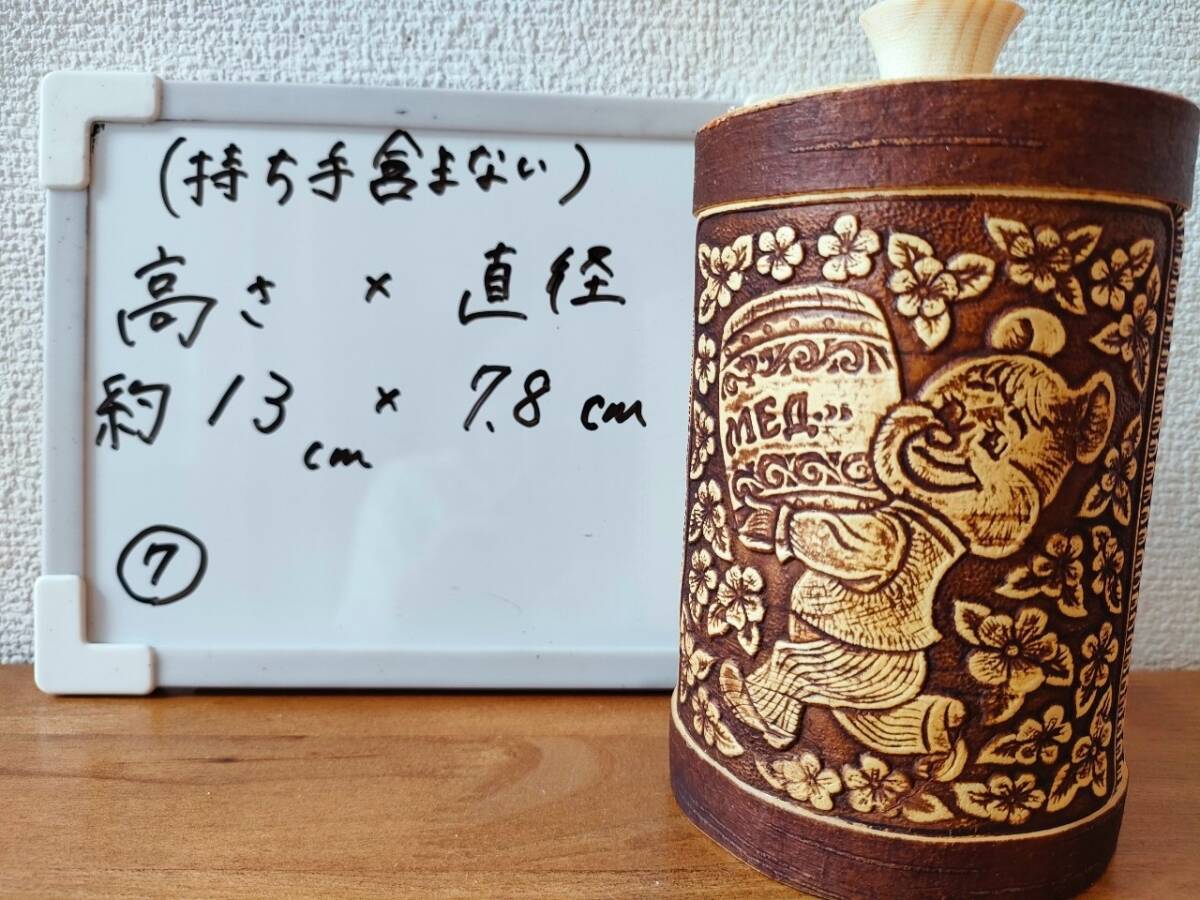 (持ち手含まない)
高さ × 直径
約 13 cm × 7.8 cm
⑦
МЕД